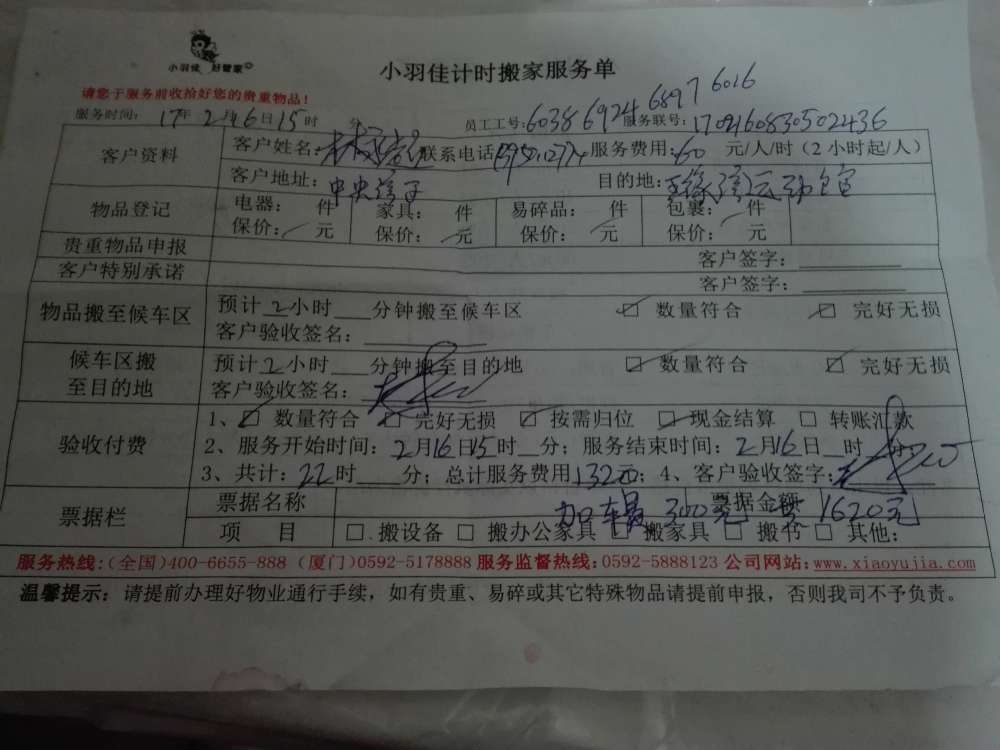 小羽佳 好管家
小羽佳计时搬家服务单
请您于服务前收拾好您的贵重物品!
服务时间: 17年2月16日15时 分 员工工号:6038 6924 6897 6016 服务联号:1702160830502436
客户资料 客户姓名: 联系电话 服务费用:60 元/人/时(2小时起/人)
客户地址:中央 目的地:
物品登记 电器: 件 家具: 件 易碎品: 件 包裹: 件
保价: 元 保价: 元 保价: 元 保价: 元
贵重物品申报 客户签字:
客户特别承诺 客户签字:
物品搬至候车区 预计2小时___分钟搬至候车区 ☑ 数量符合 ☑ 完好无损
客户验收签名:
候车区搬至目的地 预计2小时___分钟搬至目的地 ☑ 数量符合 ☑ 完好无损
客户验收签名:
验收付费 1、☑ 数量符合 ☑ 完好无损 ☑ 按需归位 ☑ 现金结算 □ 转账汇款
2、服务开始时间:2月16日15时__分;服务结束时间:2月16日__时__分
3、共计:22时____分;总计服务费用1320元;4、客户验收签字:
票据栏 票据名称 300元 票据金额 1620元
项 目 □ 搬设备 □ 搬办公家具 □ 搬家具 □ 搬书 □ 其他:
服务热线:(全国)400-6655-888 (厦门)0592-5178888 服务监督热线:0592-5888123 公司网站:www.xiaoyujia.com
温馨提示:请提前办理好物业通行手续,如有贵重、易碎或其它特殊物品请提前申报,否则我司不予负责。